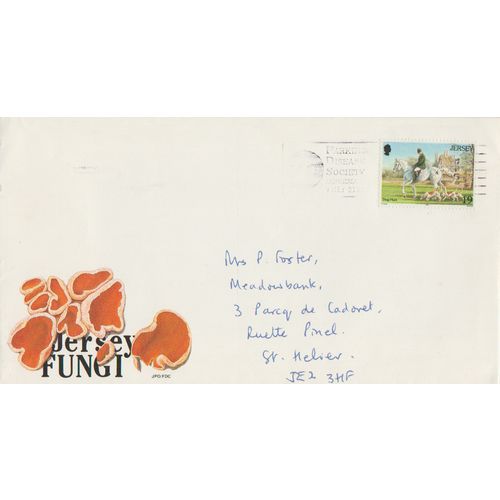 PARKINSONS
DISEASE
SOCIETY
JERSEY
19
Mrs P. Foster,
Meadowbank,
3 Parcq de Cadoret,
Ruette Pinel.
St. Helier.
JE2 3HF
Jersey
FUNGI
JPO FDC